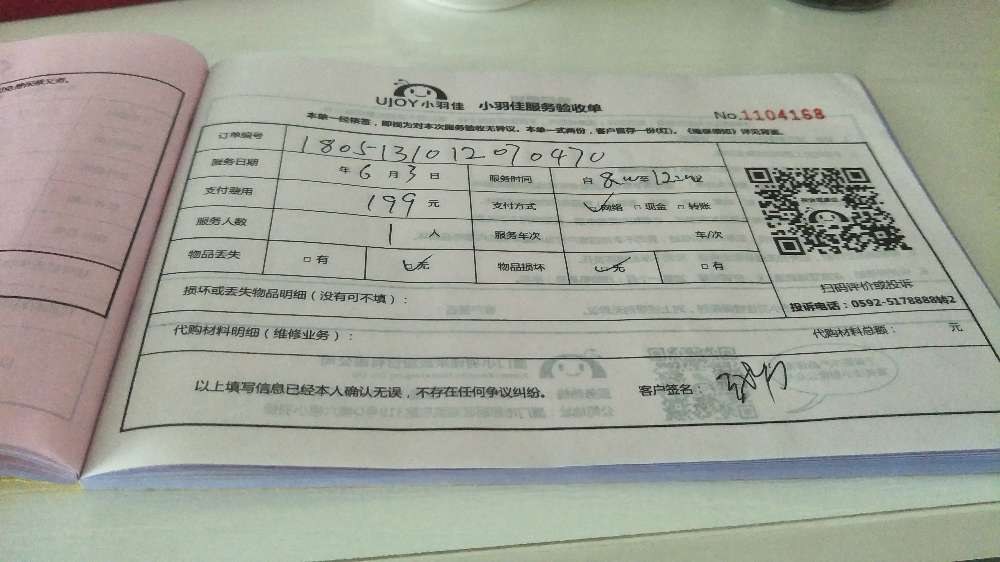 UJOY小羽佳 小羽佳服务验收单
No.1104168
本单一经核签，即视为对本次服务验收无异议。本单一式两份，客户留存一份(红)。《维保细则》详见背面。
订单编号 1805131012070470
服务日期 年 6 月 3 日 服务时间 自 8:00 至 12:00
支付费用 199 元 支付方式 网络 □现金 □转账
服务人数 1 人 服务车次 车/次
物品丢失 □有 无 物品损坏 无 □有
扫码评价或投诉
投诉电话：0592-5178888转2
损坏或丢失物品明细（没有可不填）：
代购材料明细（维修业务）： 代购材料总额： 元
以上填写信息已经本人确认无误，不存在任何争议纠纷。 客户签名：